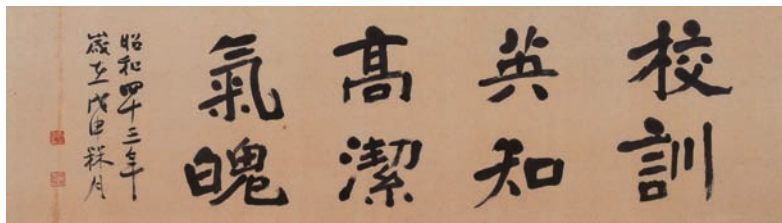 校訓
英知
高潔
氣魄
昭和四十三年
歳在戊申月